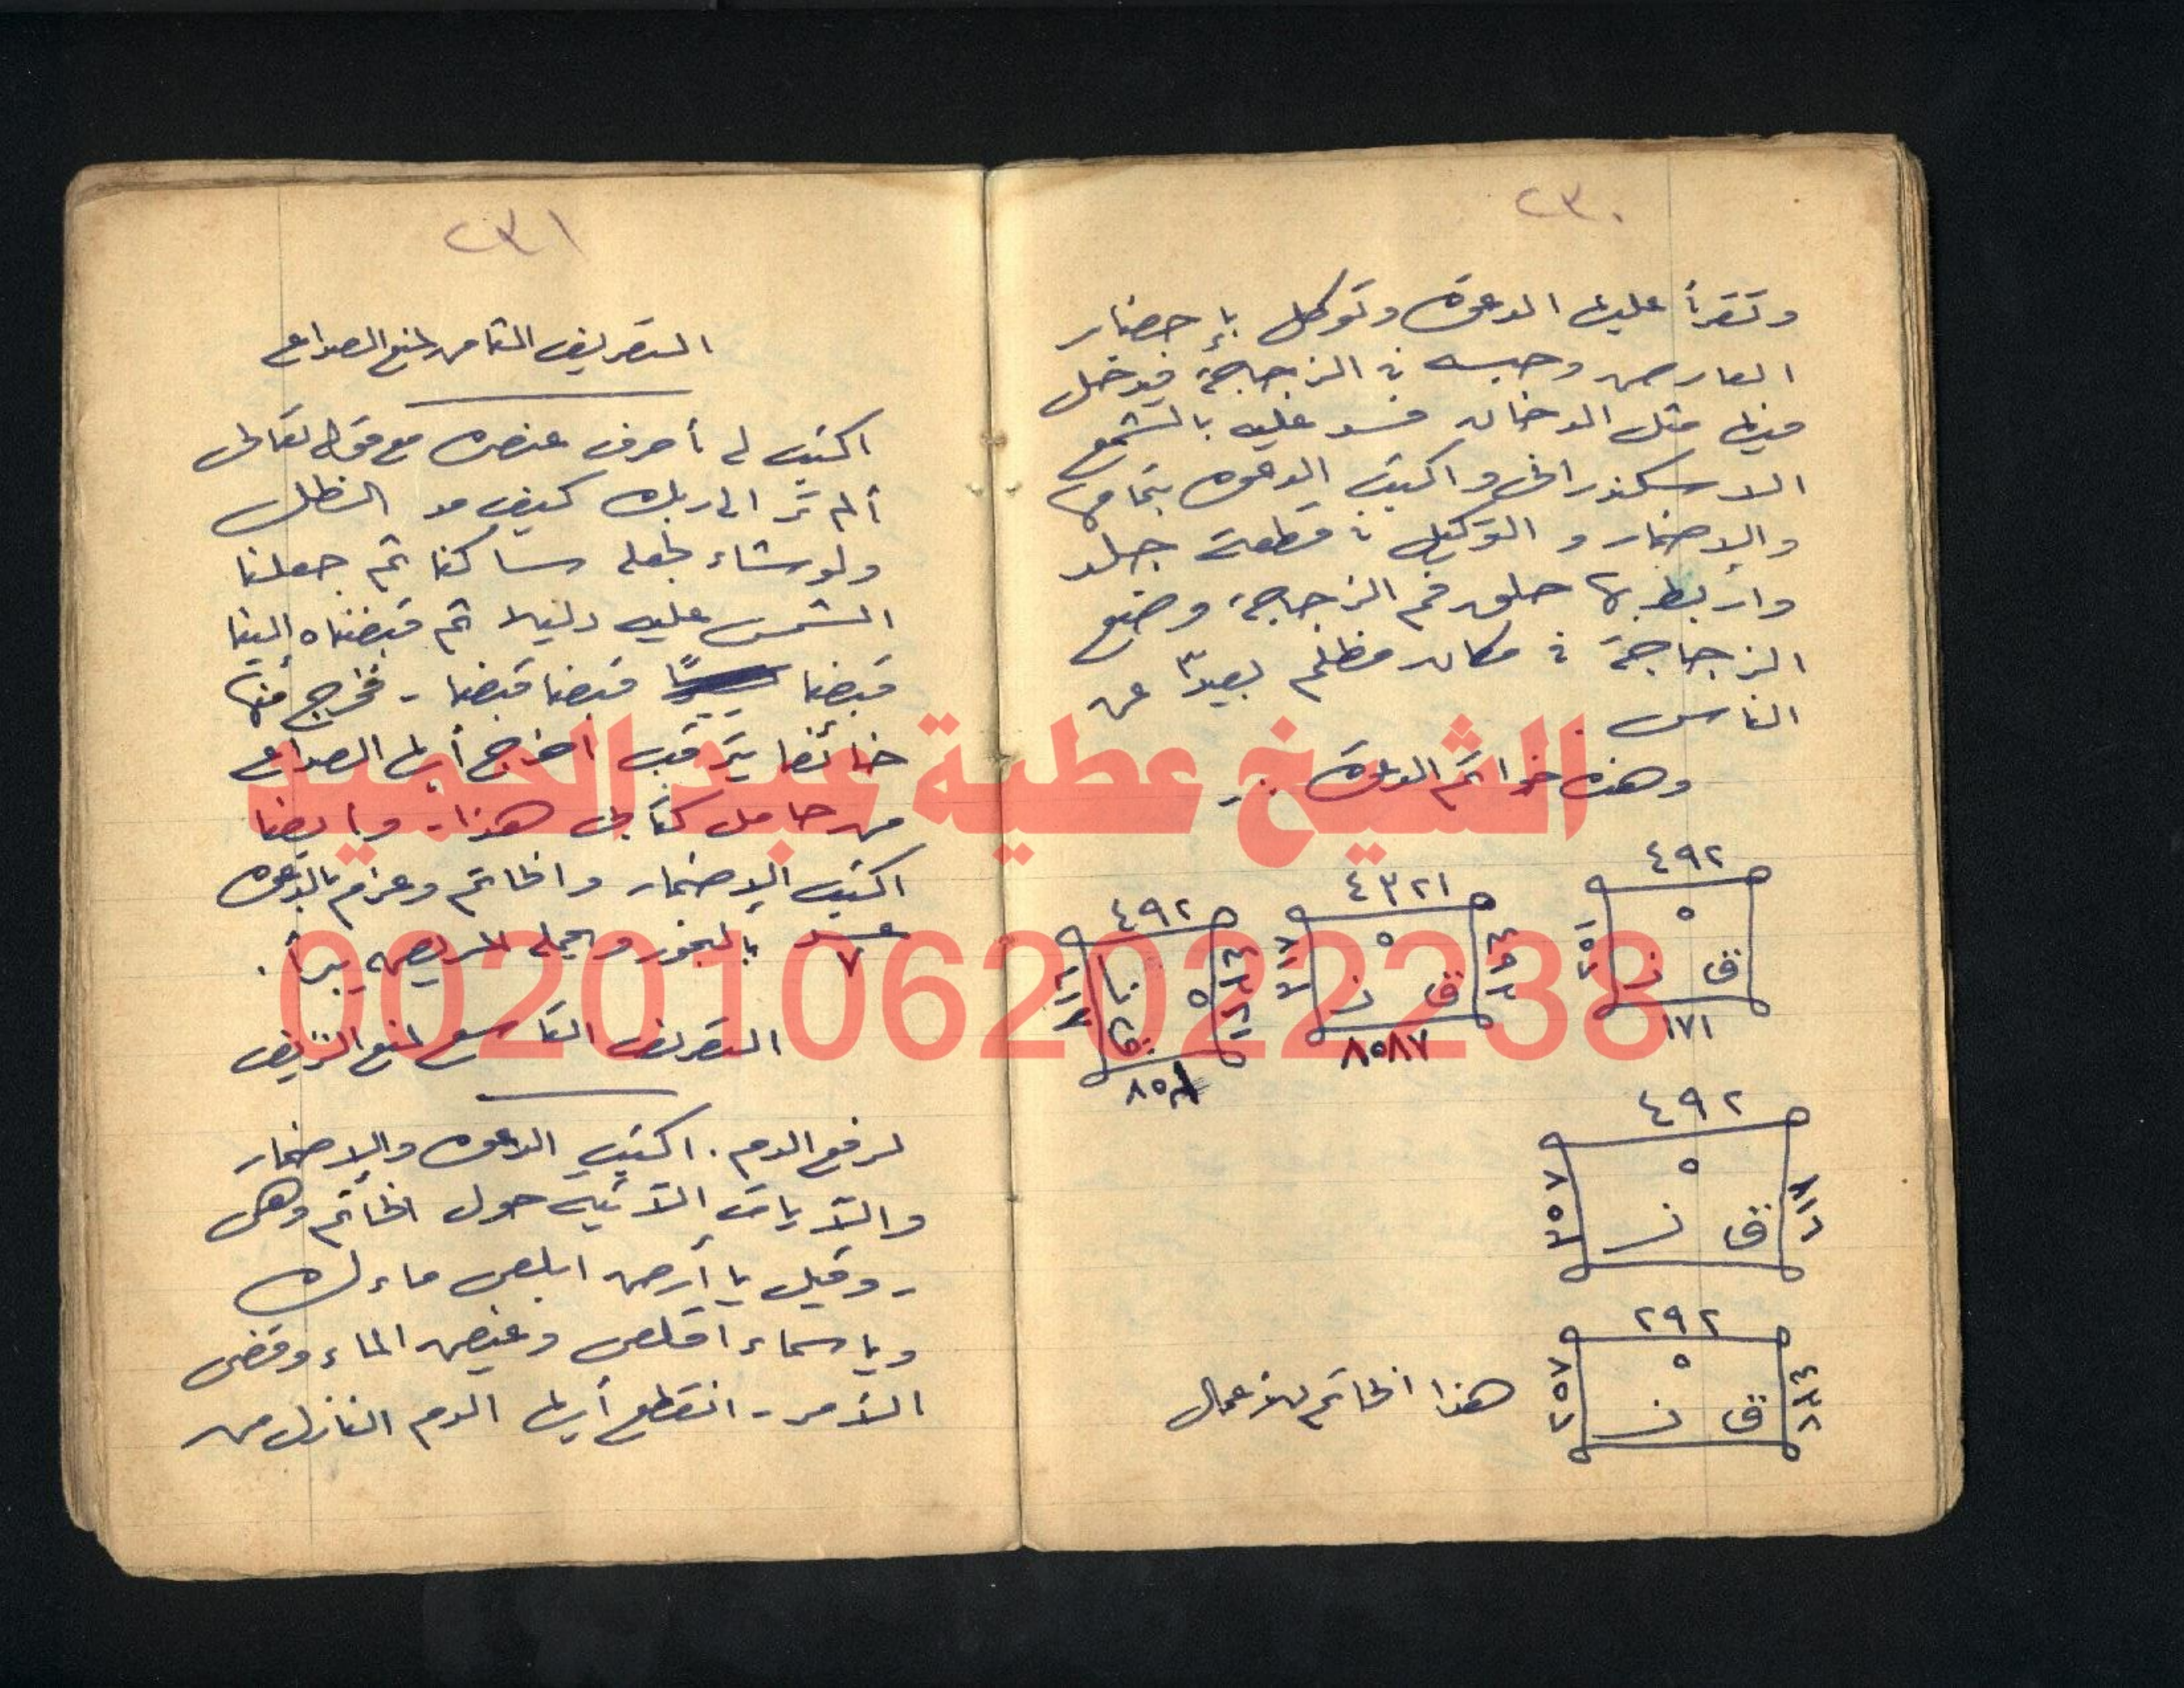 ٢٣٠
وتقرأ عليها الدعوة وتوكل بإحضار
العارض وحبسه في الزجاجة فيدخل
فيها مثل الدخان فسد عليه بالشمع
الاسكندراني واكتب الدعوة بتمامها
والإضمار والتوكيل في قطعة جلد
واربط بها حلق فم الزجاجة وضع
الزجاجة في مكان مظلم بعيدًا عن
الناس .
وهذه خواتم الدعوة :-
٤٩٢
٥
ق ز
١٧١
٤٣٢١
٥
ق ز
٨٥٨٧
٤٩٢
٥
٨٥
٤٩٢
٥
ق ز
٧٥٣
٢٩٢
٥
ق ز
٢٥٧
هذا الخاتم للأعمال
٢٣١
التصريف الثامن لمنع الصداع
اكتب له أحرف عنصره مع قوله تعالى
ألم تر إلى ربك كيف مد الظل
ولو شاء لجعله ساكنا ثم جعلنا
الشمس عليه دليلا ثم قبضناه إلينا
قبضا قبضا قبضا - فخرج منها
خائفا يترقب أخرج أيها الصداع
من حامل كتابي هذا - وايضا
اكتب الإضمار والخاتم وعزم بالدعوة
عـــدد ٧ بالبخور ويحمله المريض يبرأ .
التصريف التاسع لمنع النزيف
لرفع الدم . اكتب الدعوة والإضمار
والآيات الآتية حول الخاتم وهى
- وقيل يا أرض ابلعى ماءك
ويا سماء اقلعى وغيض الماء وقضى
الأمر - انقطع أيها الدم النازل من
الشيخ عطية عبد الحميد
00201062022238